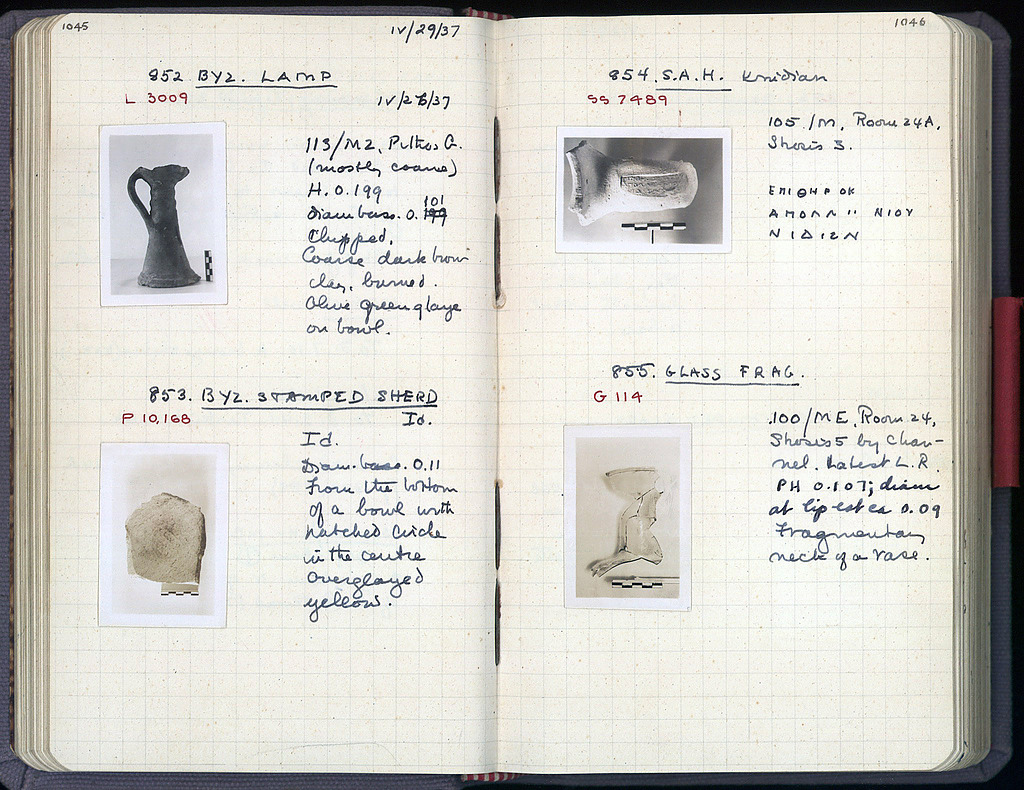 1045
IV/29/37
852 BYZ. LAMP
L 3009
IV/28/37
113/MZ, Pithos G.
(mostly coarse)
H. 0.199
diam base. 0.101
Chipped.
Coarse dark brown
clay, burned.
Olive green glaze
on bowl.
853. BYZ. STAMPED SHERD
P 10,168
Id.
Id.
Diam. base. 0.11
From the bottom
of a bowl with
hatched circle
in the centre
overglazed
yellow.
1046
854. S.A.H. Knidian
SS 7489
105/M, Room 24A,
Shosis 3.
ΕΠΙΘΗΡΟΚ
ΝΙΔΙΩΝ
855. GLASS FRAG.
G 114
100/ME, Room 24,
Shosis 5 by Chan-
nel. Latest L.R.
PH 0.107; diam
at lip est ca 0.09
Fragmentary
neck of a vase.